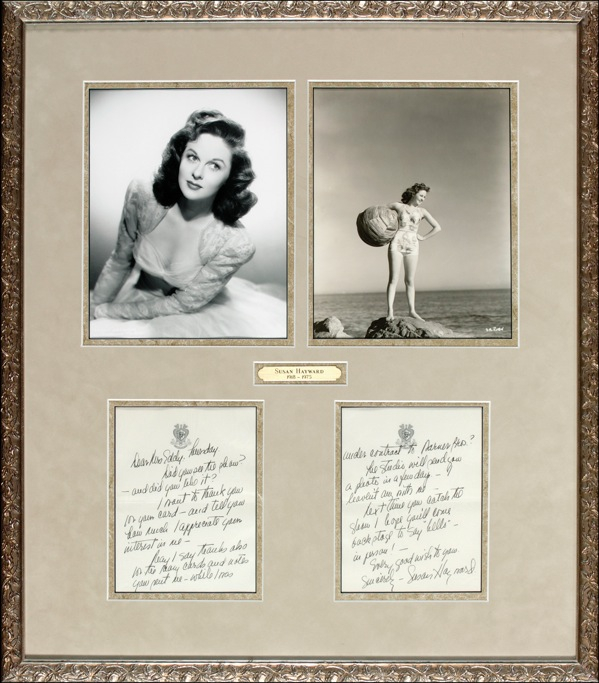 SUSAN HAYWARD
1918 - 1975
Dear Miss Thursday
Did you see the show?
- and did you like it?
I want to thank you
for your card - and tell you
how much I appreciate your
interest in me -
May I say thanks also
for the many cards and notes
you sent me - while I was
under contract to Warner Bros?
The studio will send you
a photo in a few days - I
haven't any with me -
Next time you catch the
show I hope you'll come
backstage to say "hello" -
in person! -
Every good wish to you
Sincerely - Susan Hayward